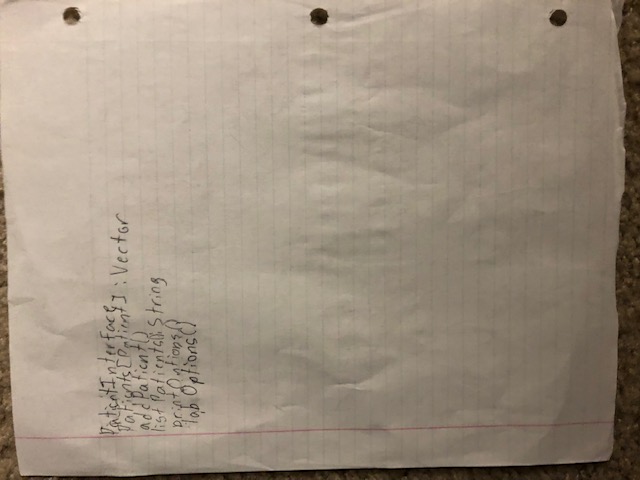 PatientInterface
Patients[Patient] : Vector
addPatient()
listPatients(): String
printOptions()
labOptions()